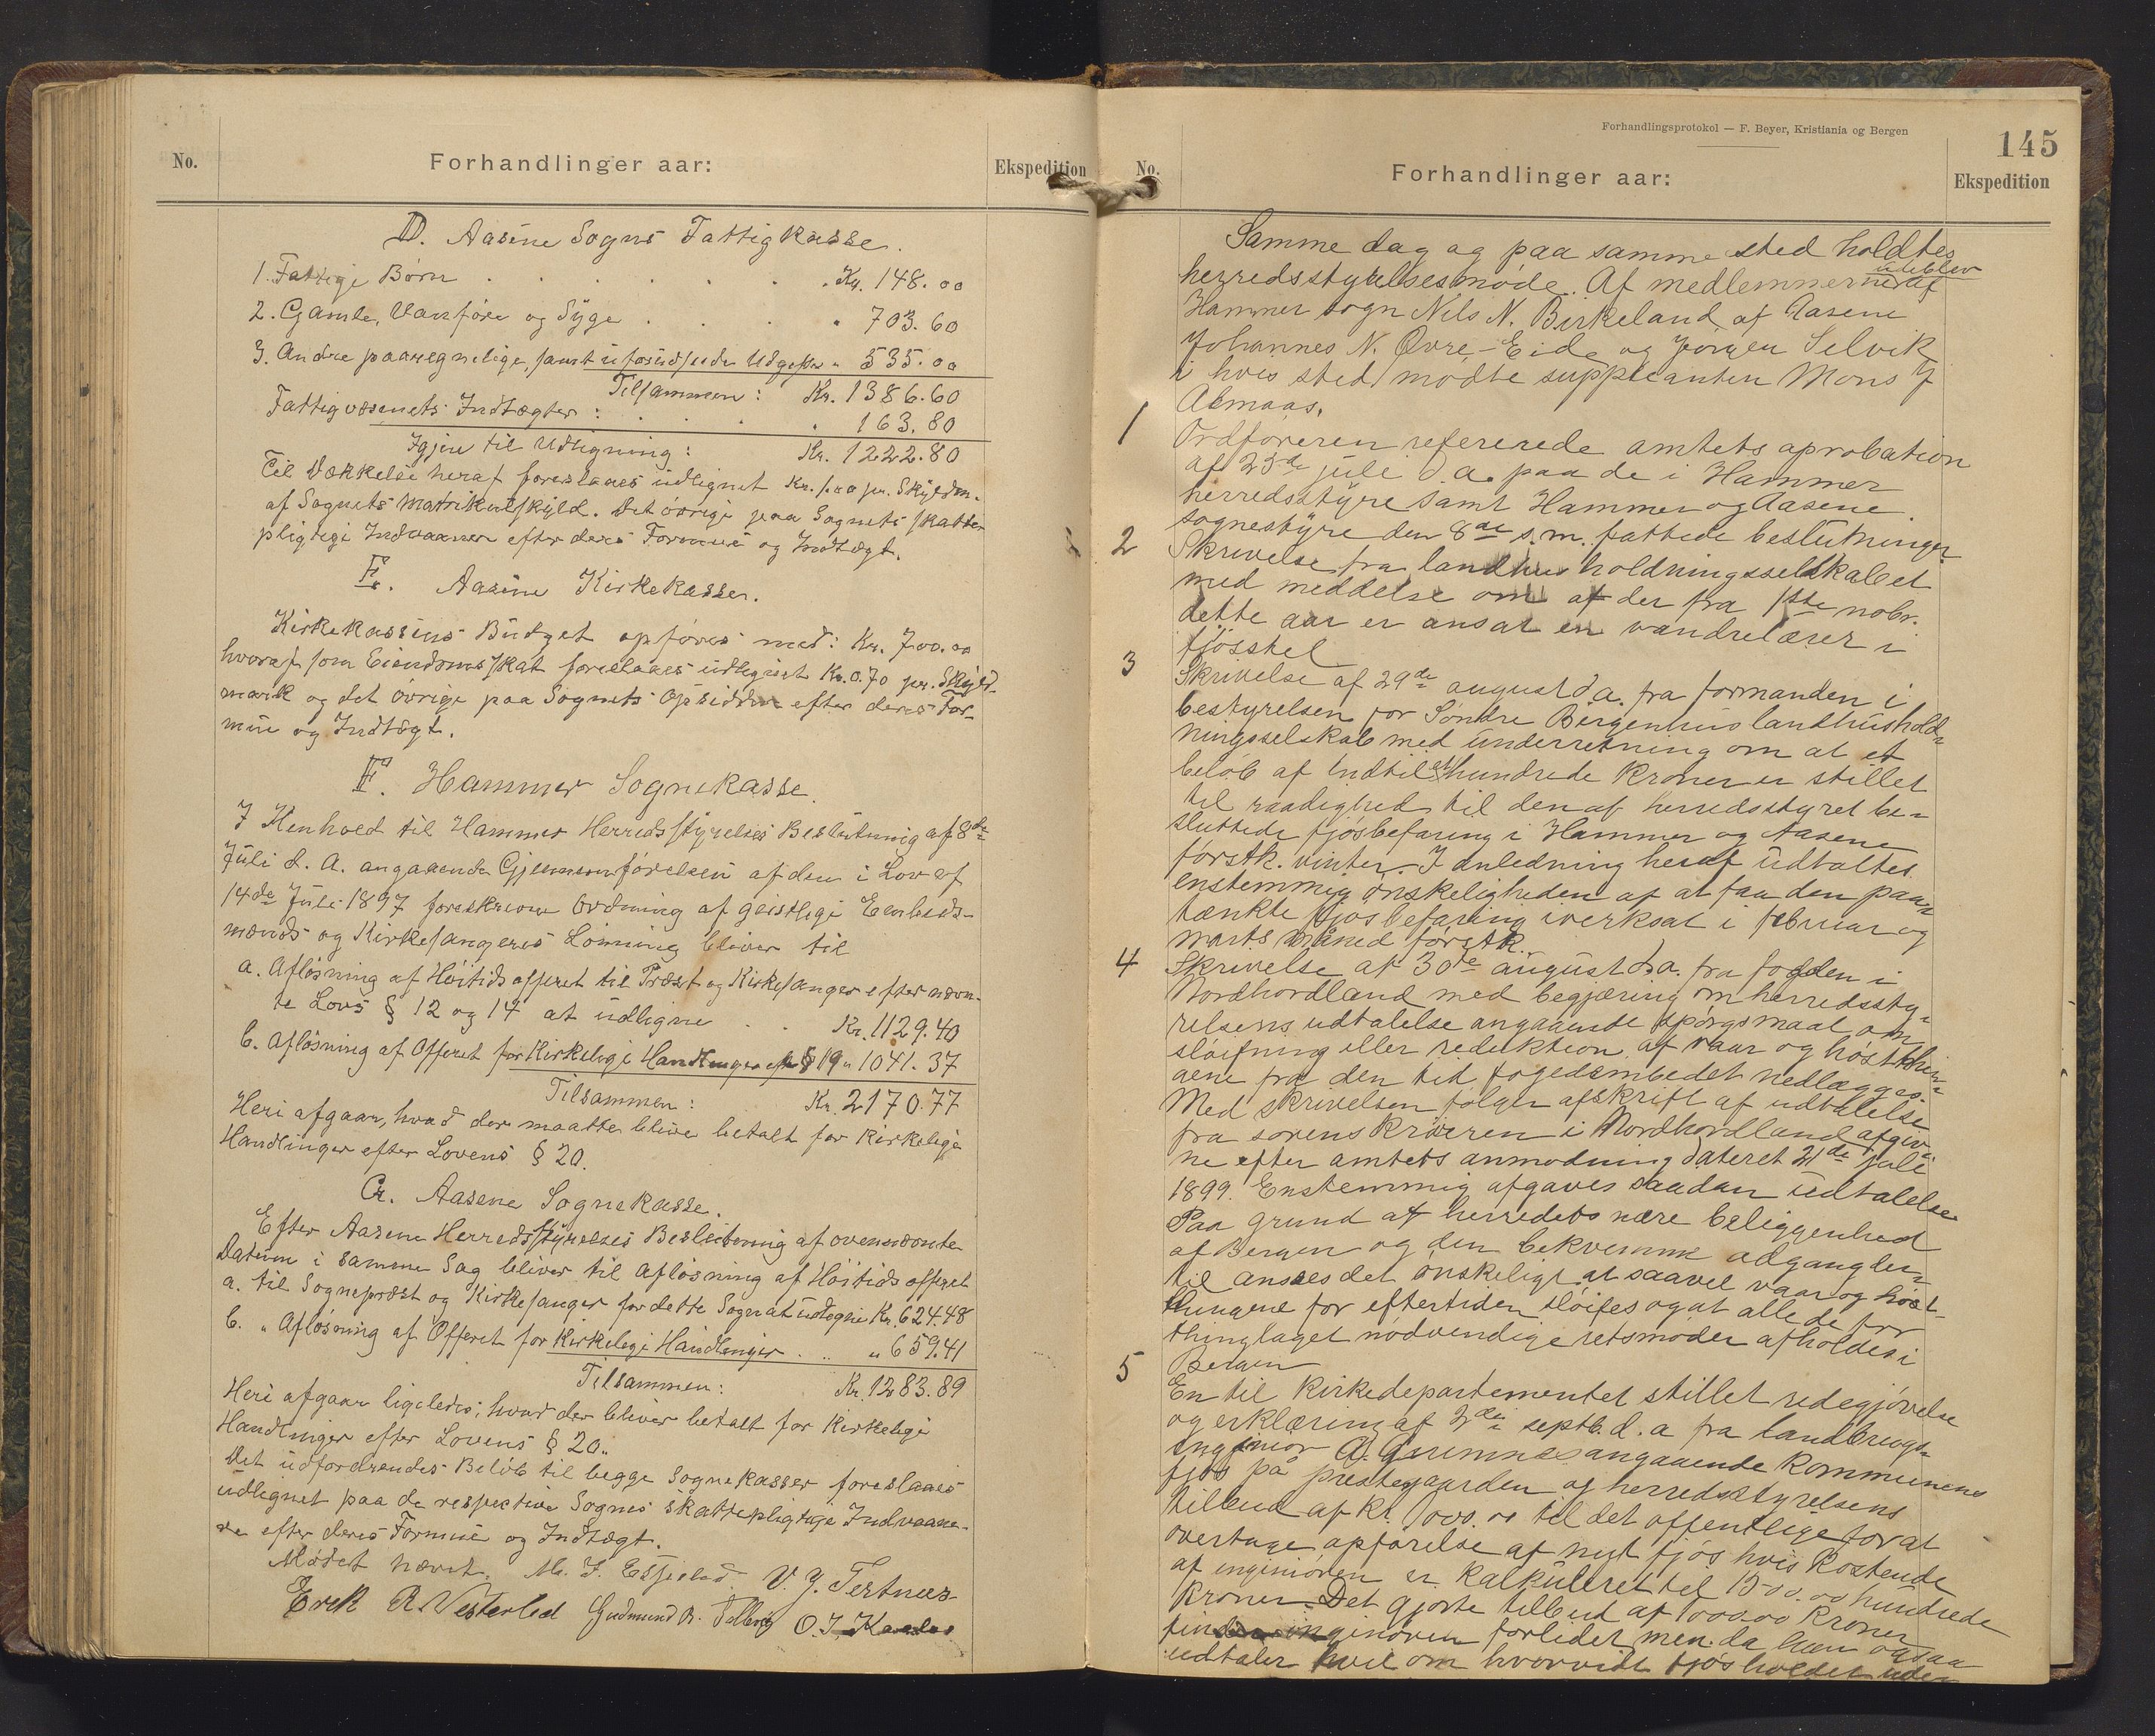 No.
Forhandlinger aar:
Ekspedition
D. Aasene Sogns Fattigkasse.
1. Fattige Børn . . . . . . Kr. 148.00
2. Gamle, Vanføre og Syge . . . . " 703.60
3. Andre paaregnelige, samt uforudseede Udgifter " 535.00
Tilsammen: Kr. 1386.60
Fattigvæsenets Indtægter: . . . . " 163.80
Igjen til Udligning: Kr. 1222.80
Til Dækkelse heraf foreslaaes udlignet Kr. 1.00 pr. Skyldm.
af Sognets Matrikulskyld. Det övrige paa Sognets skatte-
pligtige Indvaanere efter deres Formue og Indtægt.
E. Aasene Kirkekasse.
Kirkekassens Budget opføres med: Kr. 700.00
hvoraf som Eiendomsskat foreslaaes udlignet Kr. 0.70 pr. Skyld-
mark og det övrige paa Sognets Opsiddere efter deres For-
mue og Indtægt.
F. Hammer Sognekasse.
I Henhold til Hammer Herredsstyrelses Beslutning af 8de
Juli d. A. angaaende Gjennemförelsen af den i Lov af
14de Juli 1897 foreskrevne Ordning af geistlige Embeds-
mænds og Kirkesangeres Lönning bliver til
a. Aflösning af Höitidsofferet til Præst og Kirkesanger efter nævn-
te Lovs § 12 og 14 at udligne . . Kr. 1129.40
b. Aflösning af Offeret for Kirkelige Handlinger efter § 19 " 1041.37
Tilsammen: Kr. 2170.77
Heri afgaar, hvad der maatte blive betalt for Kirkelige
Handlinger efter Lovens § 20.
G. Aasene Sognekasse.
Efter Aasene Herredsstyrelses Beslutning af ovennævnte
Datum i samme Sag bliver til Aflösning af Höitidsofferet
a. til Sognepræst og Kirkesanger for dette Sogn at udligne Kr. 624.48
b. " Aflösning af Offeret for Kirkelige Handlinger . . " 659.41
Tilsammen: Kr. 1283.89
Heri afgaar ligeledes, hvad der bliver betalt for Kirkelige
Handlinger efter Lovens § 20.
Det udfordrendes Belöb til begge Sognekasser foreslaaes
udlignet paa de respektive Sognes skattepligtige Indvaane-
re efter deres Formue og Indtægt.
Mødet hævet. M. J. V. J. Tertnæs
Erik R. Vesterlid Gudmund R. O. J.
Forhandlingsprotokol — F. Beyer, Kristiania og Bergen
145
No.
Forhandlinger aar:
Ekspedition
Samme dag og paa samme sted holdtes
herredsstyrelsesmøde. Af medlemmerne udeblev af
Hammer sogn Nils N. Birkeland, af Aasene
Johannes N. Øvre-Eide og Jørgen Selvik
i hvis sted mødte suppleanten Mons
Almaas.
1 Ordføreren refererede amtets aprobation
af 25de juli d.a. paa de i Hammer
herredsstyre samt Hammer og Aasene
sognestyre den 8de s.m. fattede beslutninger.
2 Skrivelse fra landhusholdningsselskabet
med meddelse om at der fra 1ste nobr.
dette aar er ansat en vandrelærer i
fjösstel
3 Skrivelse af 29de august d.a. fra formanden i
bestyrelsen for Søndre Bergenhus landhushold-
ningsselskab med underretning om at et
beløb af indtil et hundrede kroner er stillet
til raadighed til den af herredsstyret be-
sluttede fjösbefaring i Hammer og Aasene
førstk. vinter. I anledning heraf udtaltes
enstemmig önskeligheden af at faa den paa-
tænkte fjösbefaring iverksat i februar og
marts måned førstk.
4 Skrivelse af 30te august d.a. fra fogden i
Nordhordland med begjæring om herredssty-
relsens udtalelse angaaende spørgsmaal om
sløifning eller reduktion af vaar og høstthin-
gene fra den tid fogedembedet nedlægges.
Med skrivelsen følger afskrift af udtalelse
fra sorenskriveren i Nordhordland afgiv-
ne efter amtets anmodning dateret 21de juli
1899. Enstemmig afgaves saadan udtalelse
Paa grund af herredets nære beliggenhed
af Bergen og den bekvemme adgang der-
til ansees det ønskeligt at saavel vaar og høst-
thingene for eftertiden sløifes og at alle de for
thinglaget nødvendige retsmøder afholdes i
Bergen
5 En til kirkedepartementet stillet redegjørelse
og erklæring af 2den septb. d.a fra landbrugs-
ingeniør G. angaaende kommunens
fjös på prestegaarden og herredsstyrelsens
tilbud af kr. 1000.00 til det offentlige for at
overtage opførelse af nyt fjös hvis kostende
af ingeniøren er kalkuleret til 1500.00 hundrede
kroner. Det gjorte tilbud af 1000.00 kroner
finder ingeniøren forledet men da han ogsaa
udtaler tvil om hvorvidt fjösholdet uden